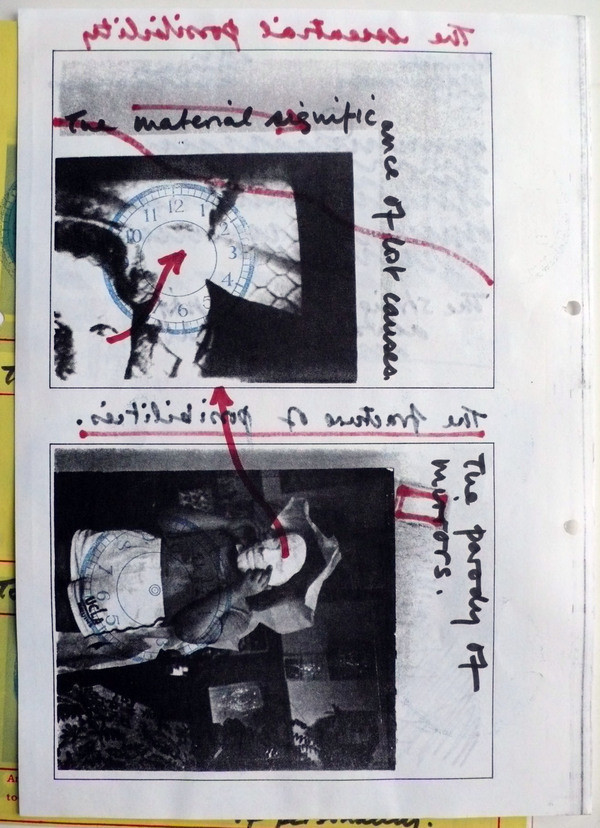 The essential possibility
The material significance of lost causes
11 12 1
10 2
3
4
6
The fracture of possibilities.
The parody of
mirrors.
UCLA